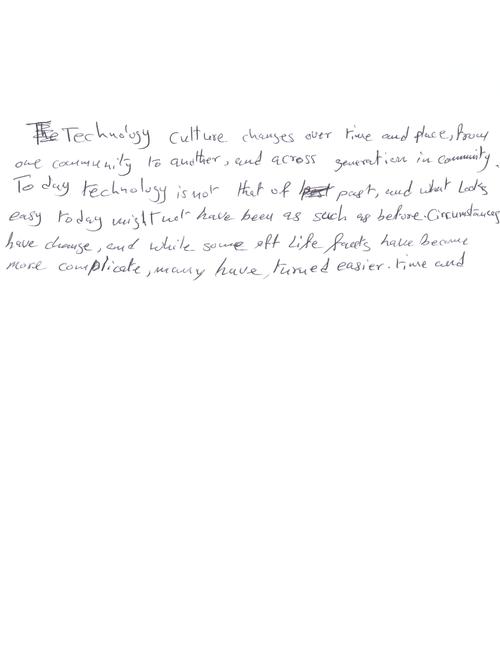 The Technology culture changes over time and place, from
one community to another, and across generation in community.
To day technology is not that of past, and what looks
easy today might not have been as such as before. Circumstances
have change, and while some off Life facets have become
more complicate, many have turned easier. time and